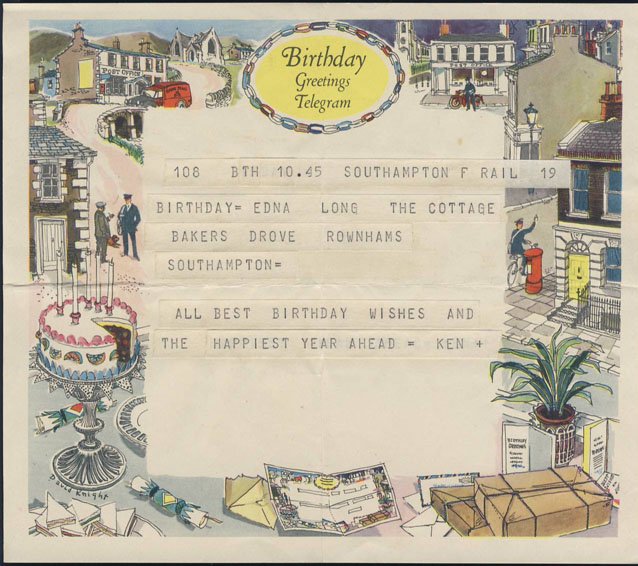 Birthday
Greetings
Telegram
POST OFFICE
POST OFFICE
108 BTH 10.45 SOUTHAMPTON F RAIL 19
BIRTHDAY= EDNA LONG THE COTTAGE
BAKERS DROVE ROWNHAMS
SOUTHAMPTON=
ALL BEST BIRTHDAY WISHES AND
THE HAPPIEST YEAR AHEAD = KEN +
David Knight